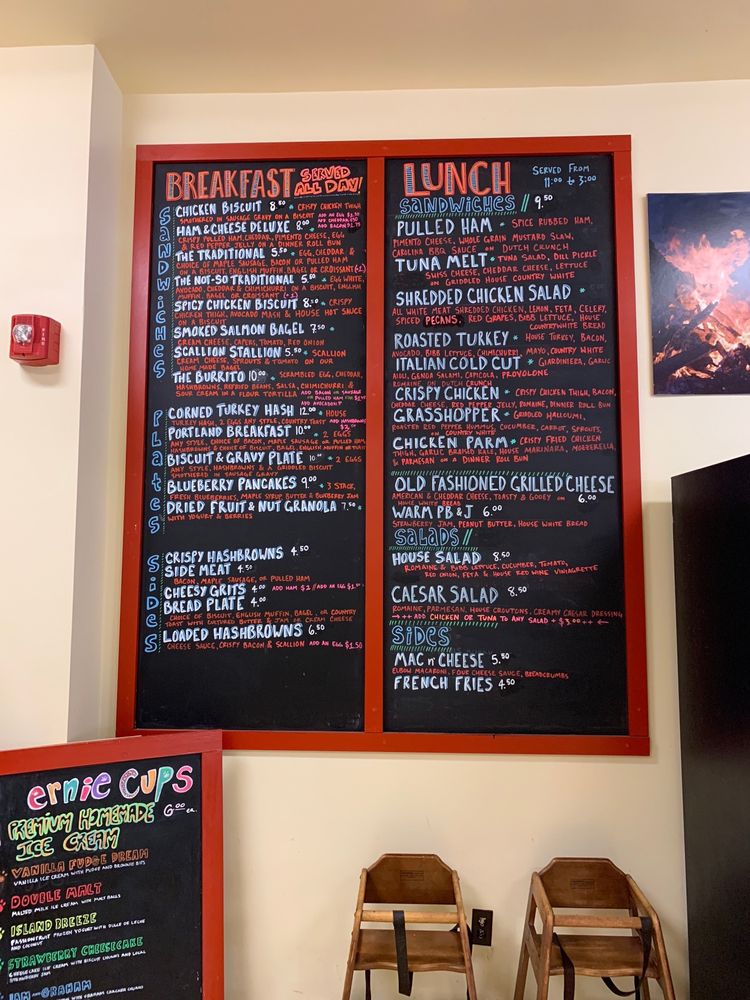 BREAKFAST SERVED ALL DAY!
Sandwiches
CHICKEN BISCUIT 8.50 * CRISPY CHICKEN THIGH
SMOTHERED IN SAUSAGE GRAVY ON A BISCUIT ADD AN EGG $1.50
HAM & CHEESE DELUXE 8.00 * ADD CHEDDAR .50 ADD BACON
CRISPY PULLED HAM, CHEDDAR, PIMENTO CHEESE, EGG
& RED PEPPER JELLY ON A DINNER ROLL BUN
THE TRADITIONAL 5.50 * EGG, CHEDDAR &
CHOICE OF MAPLE SAUSAGE, BACON OR PULLED HAM
ON A BISCUIT, ENGLISH MUFFIN, BAGEL OR CROISSANT (+1)
THE NOT-SO TRADITIONAL 5.50 * EGG WHITE,
AVOCADO, CHEDDAR & CHIMICHURRI ON A BISCUIT, ENGLISH
MUFFIN, BAGEL OR CROISSANT (+1)
SPICY CHICKEN BISCUIT 8.50 * CRISPY
CHICKEN THIGH, AVOCADO MASH & HOUSE HOT SAUCE
ON A BISCUIT
SMOKED SALMON BAGEL 7.50 *
CREAM CHEESE, CAPERS, TOMATO, RED ONION
SCALLION STALLION 5.50 * SCALLION
CREAM CHEESE, SPROUTS & TOMATO ON OUR
HOME MADE BAGEL
THE BURRITO 10.00 * SCRAMBLED EGG, CHEDDAR,
HASHBROWNS, REFRIED BEANS, SALSA, CHIMICHURRI &
SOUR CREAM IN A FLOUR TORTILLA ADD BACON OR SAUSAGE
OR PULLED HAM
ADD AVOCADO
Plates
CORNED TURKEY HASH 12.00 * HOUSE
TURKEY HASH, 2 EGGS ANY STYLE, COUNTRY TOAST ADD HASHBROWNS
PORTLAND BREAKFAST 10.00 * 2 EGGS
ANY STYLE, CHOICE OF BACON, MAPLE SAUSAGE OR PULLED HAM,
HASHBROWNS & CHOICE OF BISCUIT, BAGEL, ENGLISH MUFFIN OR TOAST
BISCUIT & GRAVY PLATE 10.00 * 2 EGGS
ANY STYLE, HASHBROWNS & A GRIDDLED BISCUIT
SMOTHERED IN SAUSAGE GRAVY
BLUEBERRY PANCAKES 9.00 * 3 STACK,
FRESH BLUEBERRIES, MAPLE SYRUP, BUTTER & BUMBERRY JAM
DRIED FRUIT & NUT GRANOLA 7.50 *
WITH YOGURT & BERRIES
Sides
CRISPY HASHBROWNS 4.50
SIDE MEAT 4.50
BACON, MAPLE SAUSAGE, OR PULLED HAM
CHEESY GRITS 4.00 ADD HAM $2 // ADD AN EGG $1.50
BREAD PLATE 4.00
CHOICE OF BISCUIT, ENGLISH MUFFIN, BAGEL, OR COUNTRY
TOAST WITH CULTURED BUTTER & JAM OR CREAM CHEESE
LOADED HASHBROWNS 6.50
CHEESE SAUCE, CRISPY BACON & SCALLION ADD AN EGG $1.50
LUNCH SERVED FROM 11:00 to 3:00
SANDWICHES // 9.50
PULLED HAM * SPICE RUBBED HAM,
PIMENTO CHEESE, WHOLE GRAIN MUSTARD SLAW,
CAROLINA BBQ SAUCE ON DUTCH CRUNCH
TUNA MELT * TUNA SALAD, DILL PICKLE
SWISS CHEESE, CHEDDAR CHEESE, LETTUCE
ON GRIDDLED HOUSE COUNTRY WHITE
SHREDDED CHICKEN SALAD *
ALL WHITE MEAT SHREDDED CHICKEN, LEMON, FETA, CELERY,
SPICED PECANS, RED GRAPES, BIBB LETTUCE, HOUSE
COUNTRYWHITE BREAD
ROASTED TURKEY * HOUSE TURKEY, BACON,
AVOCADO, BIBB LETTUCE, CHIMICHURRI, MAYO, COUNTRY WHITE
ITALIAN COLD CUT * GIARDINIERA, GARLIC
AIOLI, GENOA SALAMI, CAPICOLA, PROVOLONE
ROMAINE ON DUTCH CRUNCH
CRISPY CHICKEN * CRISPY CHICKEN THIGH, BACON,
CHEDDAR CHEESE, RED PEPPER JELLY, ROMAINE, DINNER ROLL BUN
GRASSHOPPER * GRIDDLED HALLOUMI,
ROASTED RED PEPPER HUMMUS, CUCUMBER, CARROT, SPROUTS,
ON COUNTRY WHITE
CHICKEN PARM * CRISPY FRIED CHICKEN
THIGH, GARLIC BRAISED KALE, HOUSE MARINARA, MOZZERELLA,
& PARMESAN ON A DINNER ROLL BUN
OLD FASHIONED GRILLED CHEESE
AMERICAN & CHEDDAR CHEESE, TOASTY & GOOEY ON 6.00
HOUSE WHITE BREAD
WARM PB & J 6.00
STRAWBERRY JAM, PEANUT BUTTER, HOUSE WHITE BREAD
SALADS //
HOUSE SALAD 8.50
ROMAINE & BIBB LETTUCE, CUCUMBER, TOMATO,
RED ONION, FETA & HOUSE RED WINE VINIAGRETTE
CAESAR SALAD 8.50
ROMAINE, PARMESAN, HOUSE CROUTONS, CREAMY CAESAR DRESSING
→ ++ ADD CHICKEN OR TUNA TO ANY SALAD + $3.00 ++ ←
SIDES
MAC n' CHEESE 5.50
ELBOW MACARONI, FOUR CHEESE SAUCE, BREADCRUMBS
FRENCH FRIES 4.50
FIRE
ernie cups
PREMIUM HOMEMADE 6.00 ea.
ICE CREAM
VANILLA FUDGE DREAM
VANILLA ICE CREAM WITH FUDGE AND BROWNIE BITS
DOUBLE MALT
MALTED MILK ICE CREAM WITH MALT BALLS
ISLAND BREEZE
PASSIONFRUIT FROZEN YOGURT WITH DULCE DE LECHE
AND COCONUT
STRAWBERRY CHEESECAKE
CHEESECAKE ICE CREAM WITH BISCUIT CRUMBS AND LOCAL
STRAWBERRY JAM
JAM-GRAHAM
WITH GRAHAM CRACKER CRUMBS